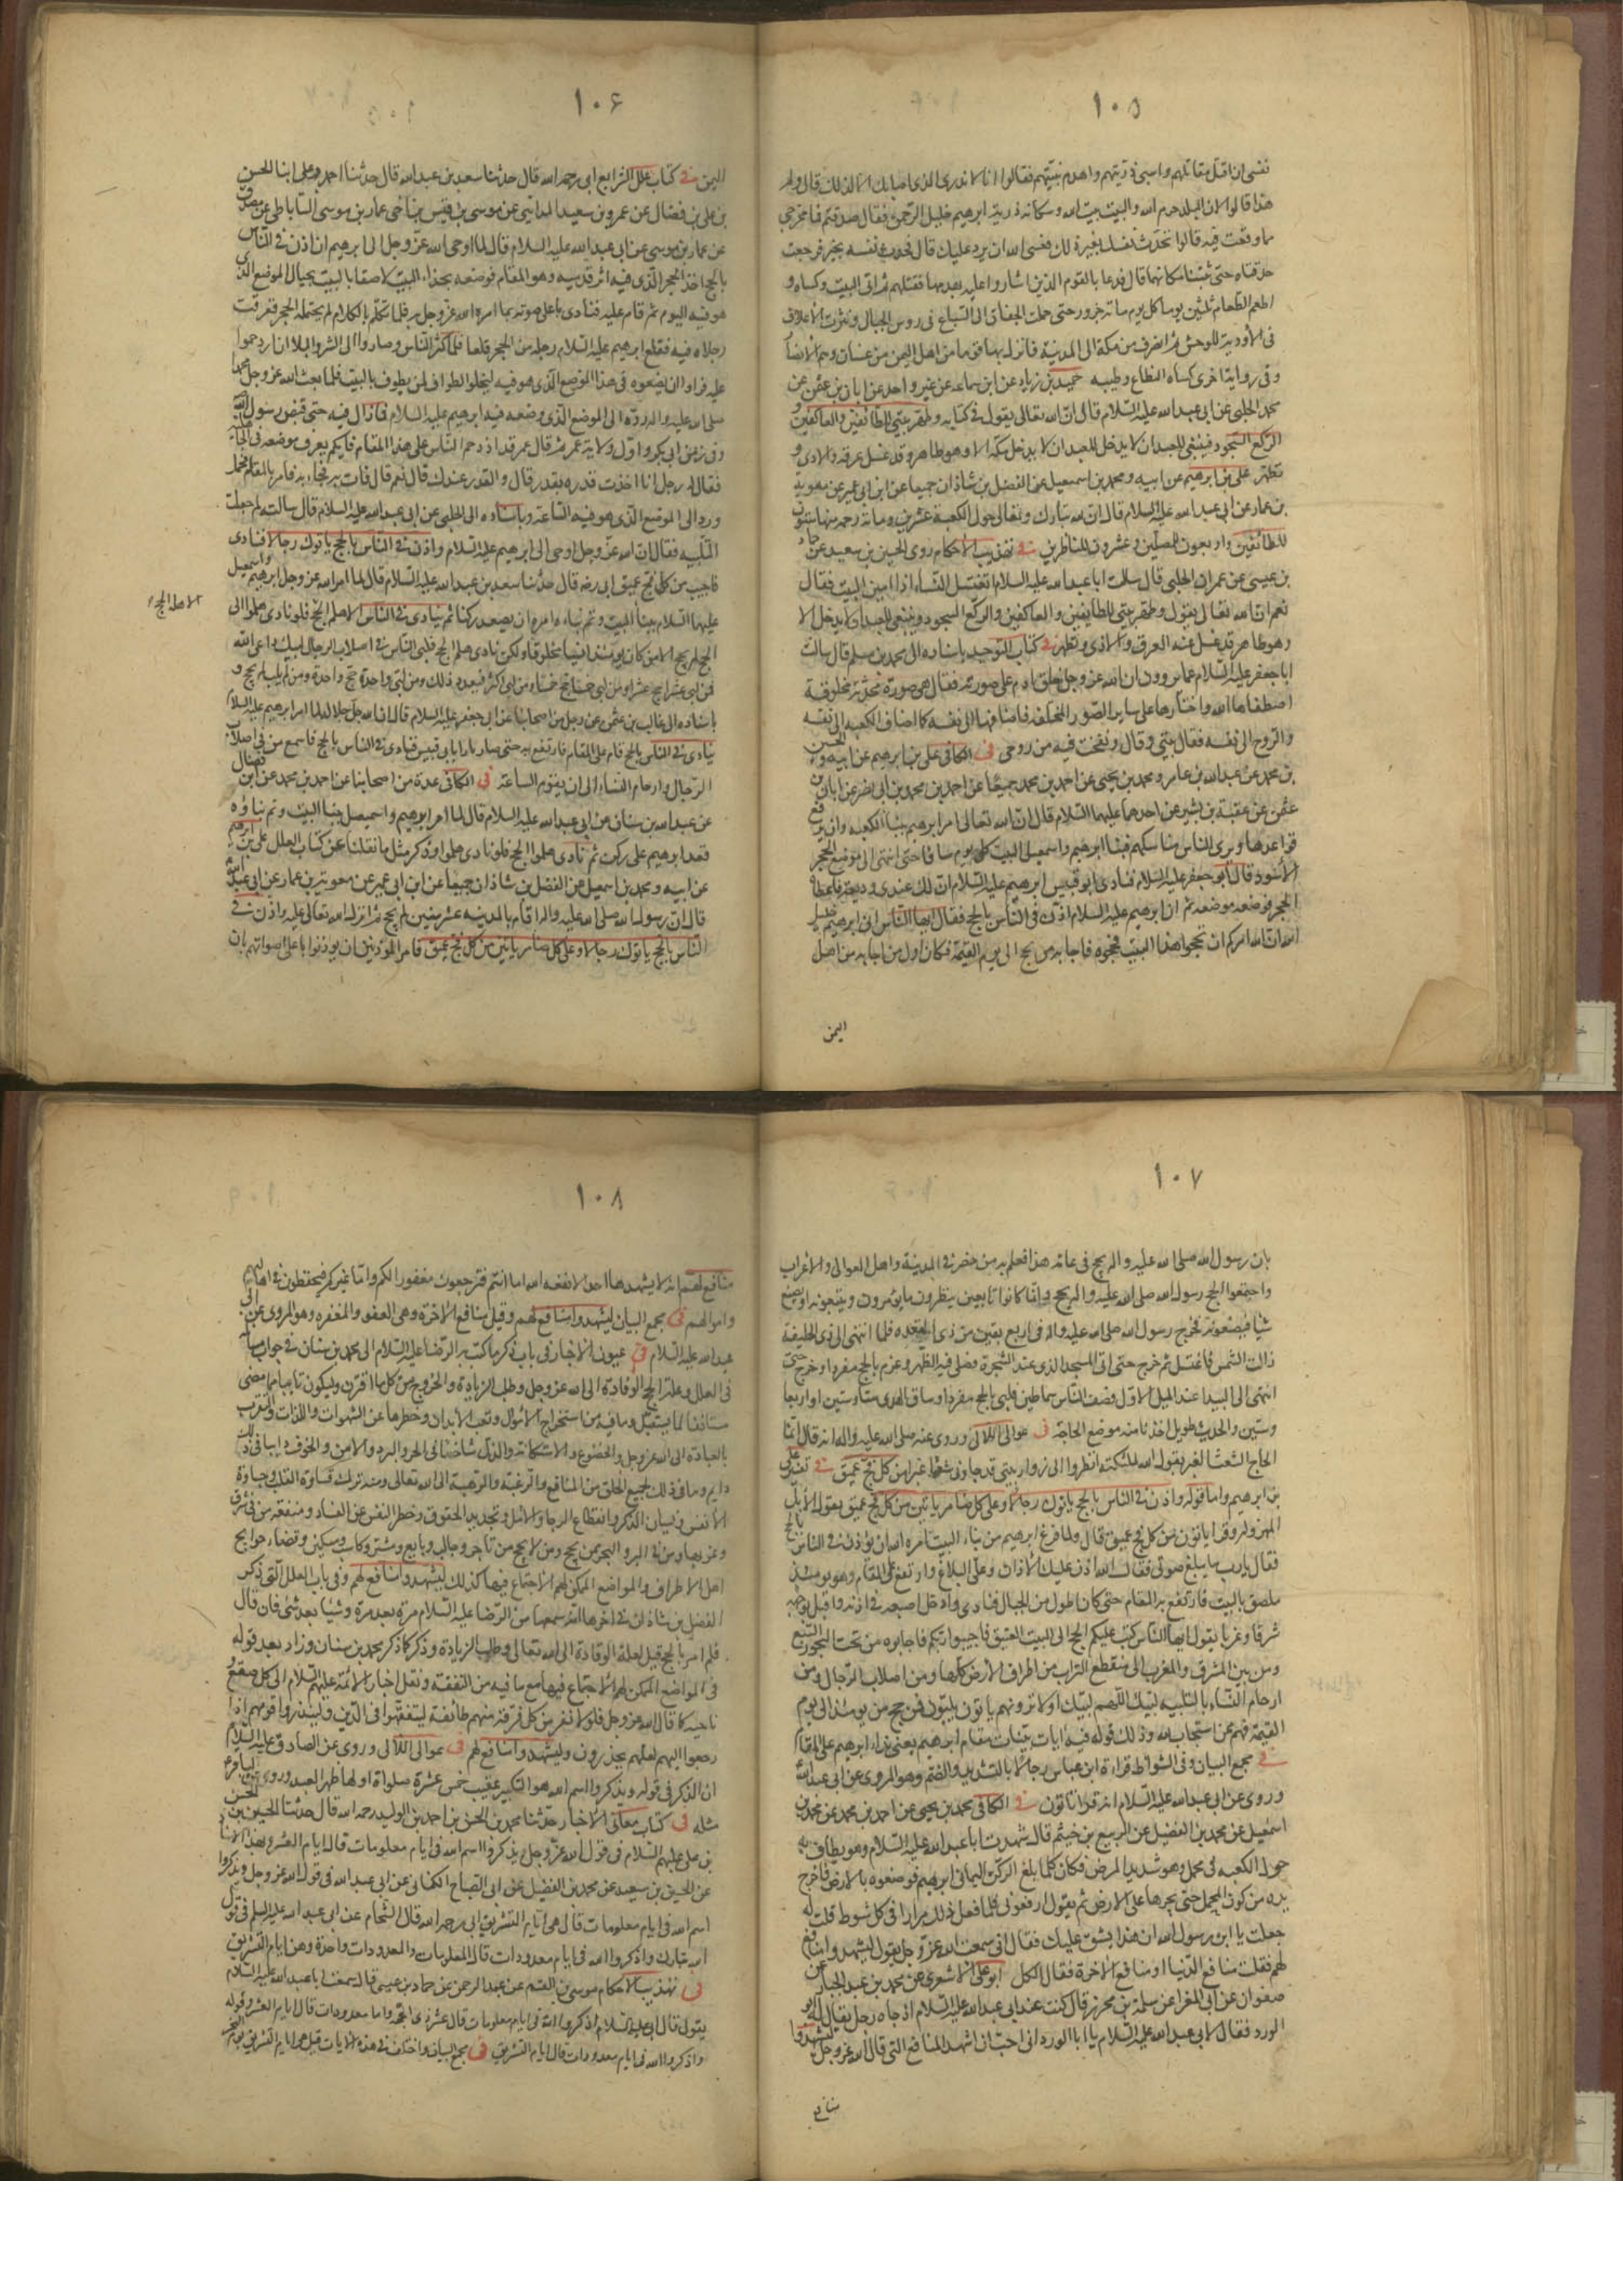 ١٠٥
نفسى ان اقتل مقاتلهم واسبى ذريتهم واهدم بنيتهم فقالوا انا لا ندرى الذى اصابك الا لذلك قال ولم
هذا قالوا لان البلد حرم الله والبيت بيت الله وسكانه ذرية ابرهيم خليل الرحمن فقال صدقتم فما مخرجى
مما وقعت فيه قالوا تحدث نفسك بغير ذلك فعسى الله ان يرد عليك قال فحدث نفسه بخير فرجعت
حدقتاه حتى ثبتتا مكانهما قال فدعا بالقوم الذين اشاروا عليه بهدمها فقتلهم ثم اتى البيت وكساه و
اطعم الطعام ثلثين يوما كل يوم مائة جزور حتى حملت الجفان الى السباع فى روس الجبال ونثرت الاعلاف
فى الاودية للوحش ثم انصرف من مكة الى المدينة فانزل بها قوما من اهل اليمن من غسان وهم الانصار
وفى رواية اخرى كساه النطاع وطيبه حميد بن زياد عن ابن سماعه عن غير واحد عن ابان بن عثمن عن
محمد الحلبى عن ابى عبد الله عليه السلام قال ان الله تعالى يقول فى كتابه وطهر بيتى للطائفين والعاكفين و
الركع السجود فينبغى للعبد ان لا يدخل مكة الا وهو طاهر وقد غسل عرقه والاذى و
تطهر على بن ابرهيم عن ابيه ومحمد بن اسمعيل عن الفضل بن شاذان جميعا عن ابن ابى عمير عن معوية
بن عمار عن ابى عبد الله عليه السلام قال ان لله تبارك وتعالى حول الكعبة عشرين ومائة رحمه منها ستون
للطائفين واربعون للمصلين وعشرون للناظرين فى تهذيب الاحكام روى الحسين بن سعيد عن حماد
بن عيسى عن عمران الحلبى قال سالت ابا عبد الله عليه السلام اتغتسل النساء اذا اتين البيت فقال
نعم ان الله تعالى يقول وطهر بيتى للطايفين والعاكفين والركع السجود وينبغى للعبد ان لا يدخل الا
وهو طاهر قد غسل عنه العرق والاذى وتطهر فى كتاب التوحيد باسناده الى محمد بن مسلم قال سالت
ابا جعفر عليه السلام عما يروون ان الله عز وجل خلق ادم على صورته فقال هى صورة محدثة مخلوقة
اصطفاها الله واختارها على ساير الصور المختلفه فاضافها الى نفسه كما اضاف الكعبه الى نفسه
والروح الى نفسه فقال بيتى وقال ونفخت فيه من روحى فى الكافى على بن ابرهيم عن ابيه والحسين
بن محمد عن عبد الله بن عامر ومحمد بن يحيى عن احمد بن محمد جميعا عن احمد بن محمد بن ابى نصر عن ابان بن
عثمن عن عقبة بن بشير عن احدهما عليهما السلام قال ان الله تعالى امر ابرهيم ببناء الكعبه وان يرفع
قواعدها ويرى الناس مناسكهم فبنا ابرهيم واسمعيل البيت كل يوم سافا حتى انتهى الى موضع الحجر
الاسود قال ابو جعفر عليه السلام فنادى ابو قبيس ابرهيم عليه السلام ان لك عندى وديعة فاعطاه
الحجر فوضعه موضعه ثم ان ابرهيم عليه السلام اذن فى الناس بالحج فقال ايها الناس انى ابرهيم خليل
الله ان الله امركم ان تحجوا هذا البيت فحجوه فاجابه من يحج الى يوم القيمة فكان اول من اجابه من اهل
اليمن
١٠۶
اليمن فى كتاب علل الشرايع ابى رحمه الله قال حدثنا سعد بن عبد الله قال حدثنا احمد وعلى ابنا الحسن
بن على بن فضال عن عمرو بن سعيد المدائنى عن موسى بن قيس بن اخى عمار بن موسى الساباطى عن مصدق
عن عمار بن موسى عن ابى عبد الله عليه السلام قال لما اوحى الله عز وجل الى ابرهيم ان اذن فى الناس
بالحج اخذ الحجر الذى فيه اثر قدميه وهو المقام فوضعه بحذاء البيت لاصقا بالبيت بحيال الموضع الذى
هو فيه اليوم ثم قام عليه فنادى باعلى صوته بما امره الله عز وجل به فلما تكلم بالكلام لم يحتمله الحجر فغرقت
رجلاه فيه فقلع ابرهيم عليه السلام رجليه من الحجر قلعا فلما كثر الناس وصاروا الى الشر والبلا ازدحموا
عليه فراوا ان يضعوه فى هذا الموضع الذى هو فيه ليخلوا الطواف لمن يطوف بالبيت فلما بعث الله عز وجل محمدا
صلى الله عليه واله رده الى الموضع الذى وضعه فيه ابرهيم عليه السلام فما زال فيه حتى قبض رسول الله
وفى زمن ابى بكر واول ولاية عمر ثم قال عمر قد ازدحم الناس على هذا المقام فايكم يعرف موضعه فى الجاهلية
فقال له رجل انا اخذت قدره بقدر قال والقدر عندك قال نعم قال فات به فجاء به فامر بالمقام فحمل
ورد الى الموضع الذى هو فيه الساعة وباسناده الى الحلبى عن ابى عبد الله عليه السلام قال سالته لم جعلت
التلبيه فقال ان الله عز وجل اوحى الى ابرهيم عليه السلام واذن فى الناس بالحج ياتوك رجالا فنادى
فاجيب من كل فج عميق ابى رضه قال حدثنا سعد بن عبد الله عليه السلام قال لما امر الله عز وجل ابرهيم واسمعيل
عليهما السلام ببناء البيت وتم بناءه امره ان يصعد ركنا ثم ينادى فى الناس الا هلم الحج فلو نادى هلموا الى
الا هلم الحج
الحج لم يحج الا من كان يومئذ انسيا مخلوقا ولكن نادى هلم الحج فلبى الناس فى اصلاب الرجال لبيك داعى الله
فمن لبى عشرا حج عشرا ومن لبى خمسا حج خمسا ومن لبى اكثر فبعدد ذلك ومن لبى واحدة حج واحدة ومن لم يلب لم يحج و
باسناده الى غالب بن عثمن عن رجل من اصحابنا عن ابى جعفر عليه السلام قال ان الله جل جلاله لما امر ابرهيم عليه السلام
ينادى فى الناس بالحج قام على المقام فارتفع به حتى صار بازاء ابى قبيس فنادى فى الناس بالحج فاسمع من فى اصلاب
الرجال وارحام النساء الى ان يقوم الساعة فى الكافى عدة من اصحابنا عن احمد بن محمد عن ابن فضال
عن عبد الله بن سنان عن ابى عبد الله عليه السلام قال لما امر ابرهيم واسمعيل ببنا البيت وتم بناؤه
قعد ابرهيم على ركن ثم نادى هلموا الحج فلو نادى هلموا وذكر مثل ما نقلنا عن كتاب العلل على بن ابرهيم
عن ابيه ومحمد بن اسمعيل عن الفضل بن شاذان جميعا عن ابن ابى عمير عن معوية بن عمار عن ابى عبد الله
قال ان رسول الله صلى الله عليه واله اقام بالمدينه عشر سنين لم يحج ثم انزل الله تعالى عليه واذن فى
الناس بالحج ياتوك رجالا وعلى كل ضامر ياتين من كل فج عميق فامر المؤذنين ان يوذنوا باعلى اصواتهم بان
١٠٧
بان رسول الله صلى الله عليه واله يحج فى عامه هذا فعلم به من حضر فى المدينة واهل العوالى والاعراب
واجتمعوا لحج رسول الله صلى الله عليه واله وانما كانوا تابعين ينظرون ما يؤمرون ويتبعونه او يصنع
شيئا فيصنعونه فخرج رسول الله صلى الله عليه واله فى اربع بقين من ذى القعده فلما انتهى الى ذى الحليفة
زالت الشمس فاغتسل ثم خرج حتى اتى المسجد الذى عند الشجرة فصلى فيه الظهر وعزم بالحج مفردا وخرج حتى
انتهى الى البيدا عند الميل الاول فصف الناس سماطين فلبى بالحج مفردا وساق الهدى ستا وستين او اربعا
وستين والحديث طويل اخذنا منه موضع الحاجة فى عوالى اللالى وروى عنه صلى الله عليه واله انه قال انما
الحاج الشعث الغبر يقول الله لملئكته انظروا الى زوار بيتى قد جاونى شعثا غبرا من كل فج عميق فى تفسير على
بن ابرهيم واما قوله واذن فى الناس بالحج ياتوك رجالا وعلى كل ضامر ياتين من كل فج عميق يقول الابل
المهزوله وقرا ياتون من كل فج عميق قال ولما فرغ ابرهيم من بناء البيت امره الله ان يؤذن فى الناس بالحج
فقال يا رب ما يبلغ صوتى فقال الله اذن عليك الاذان وعلى البلاغ وارتفع على المقام وهو يومئذ
ملصق بالبيت فارتفع به المقام حتى كان اطول من الجبال فنادى وادخل اصبعه فى اذنه واقبل بوجهه
شرقا وغربا يقول ايها الناس كتب عليكم الحج الى البيت العتيق فاجيبوا ربكم فاجابوه من تحت البحور السبع
ومن بين المشرق والمغرب الى منقطع التراب من اطراف الارض كلها ومن اصلاب الرجال ومن
ارحام النساء بالتلبيه لبيك اللهم لبيك اولا ترونهم ياتون يلبون فمن حج من يومئذ الى يوم
القيمة فهم ممن استجاب لله وذلك قوله فيه ايات بينات مقام ابرهيم يعنى نداء ابرهيم على المقام
فى مجمع البيان وفى الشواذ قراءة ابن عباس رجالا بالتشديد والضم وهو المروى عن ابى عبد الله
وروى عن ابى عبد الله عليه السلام انه قرا ياتون فى الكافى محمد بن يحيى عن احمد بن محمد عن محمد بن
اسمعيل عن محمد بن الفضيل عن الربيع بن خيثم قال شهدت ابا عبد الله عليه السلام وهو يطاف به
حول الكعبه فى محمل وهو شديد المرض فكان كلما بلغ الركن اليمانى امرهم فوضعوه بالارض فاخرج
يده من كوة المحمل حتى يجرها على الارض ثم يقول ارفعونى فلما فعل ذلك مرارا فى كل شوط قلت له
جعلت يا ابن رسول الله ان هذا يشق عليك فقال انى سمعت الله عز وجل يقول ليشهدوا منافع
لهم فقلت منافع الدنيا او منافع الاخرة فقال الكل ابو على الاشعرى عن محمد بن عبد الجبار عن
صفوان عن ابى المغرا عن سلمة بن محرز قال كنت عند ابى عبد الله عليه السلام اذ جاه رجل يقال له ابو
الورد فقال لابى عبد الله عليه السلام يا ابا الورد انى احب ان اشهد المنافع التى قال الله عز وجل ليشهدوا
منافع
١٠٨
منافع لهم انه لا يشهدها احد الا نفعه الله اما انتم فترجعون مغفورا لكم واما غيركم فيحفظون فى اهاليهم
واموالهم فى مجمع البيان ليشهدوا منافع لهم وقيل منافع الاخرة وهى العفو والمغفره وهو المروى عن ابى
عبد الله عليه السلام فى عيون الاخبار فى باب ذكر ما كتب به الرضا عليه السلام الى محمد بن سنان فى جواب مسائله
فى العلل وعلة الحج الوفادة الى الله عز وجل وطلب الزيادة والخروج من كل ما اقترف وليكون تائبا مما مضى
مستانفا لما يستقبل وما فيه من استخراج الاموال وتعب الابدان وحظرها عن الشهوات واللذات والتقرب
بالعبادة الى الله عز وجل والخضوع والاستكانه والذل شاخصا الى الحر والبرد والامن والخوف دايبا فى ذلك
دايم وما فى ذلك لجميع الخلق من المنافع والرغبة والرهبة الى الله تعالى ومنه ترك قساوة القلب وجساوة
الانفس ونسيان الذكر وانقطاع الرجا والامل وتجديد الحقوق وحظر النفس عن الفساد ومنفعة من فى شرق
وغربها ومن فى البر والبحر ممن يحج ومن لا يحج من تاجر وجالب وبايع ومشترى وكاسب ومسكين وقضاء حوايج
اهل الاطراف والمواضع الممكن لهم الاجتماع فيها كذلك ليشهدوا منافع لهم وفى باب العلل التى ذكر
الفضل بن شاذان فى اخرها انه سمعها من الرضا عليه السلام مرة بعد مرة وشيئا بعد شئ فان قال
فلم امر بالحج قيل لعلة الوفادة الى الله تعالى وطلب الزيادة وذكر كما ذكر محمد بن سنان وزاد بعد قوله
فى المواضع الممكن لهم الاجتماع فيها مع ما فيه من التفقه ونقل اخبار الائمة عليهم السلام الى كل صقع و
ناحية كما قال الله عز وجل فلولا نفر من كل فرقة منهم طائفة ليتفقهوا فى الدين ولينذروا قومهم اذا
رجعوا اليهم لعلهم يحذرون وليشهدوا منافع لهم فى عوالى اللالى وروى عن الصادق عليه السلام
ان الذكر فى قوله ويذكروا اسم الله هو التكبير عقيب خمس عشرة صلواة اولها ظهر العيد وروى عن الباقر ع
مثله فى كتاب معانى الاخبار حدثنا محمد بن الحسن بن احمد بن الوليد رحمه الله قال حدثنا الحسين بن الحسن
بن على عليهم السلام فى قول الله عز وجل يذكروا اسم الله فى ايام معلومات قال ايام العشر وبهذا الاسناد
عن الحسين بن سعيد عن محمد بن الفضيل عن ابى الصباح الكنانى عن ابى عبد الله فى قول الله عز وجل ويذكروا
اسم الله فى ايام معلومات قال هى ايام التشريق ابى رحمه الله قال الشحام عن ابى عبد الله عليه السلم فى قول
الله تبارك واذكروا الله فى ايام معدودات قال المعلومات والمعدودات واحدة وهن ايام التشريق
فى تهذيب الاحكام موسى بن القسم عن عبد الرحمن عن حماد بن عيسى قال سمعت ابا عبد الله عليه السلام
يقول قال ابى عليه السلام اذكروا الله فى ايام معلومات قال عشر ذى الحجة واما معدودات قال ايام العشر وقوله
واذكروا الله فى ايام معدودات قال ايام التشريق فى مجمع البيان واختلف فى هذه الايات قيل هى ايام التشريق يوم النحر